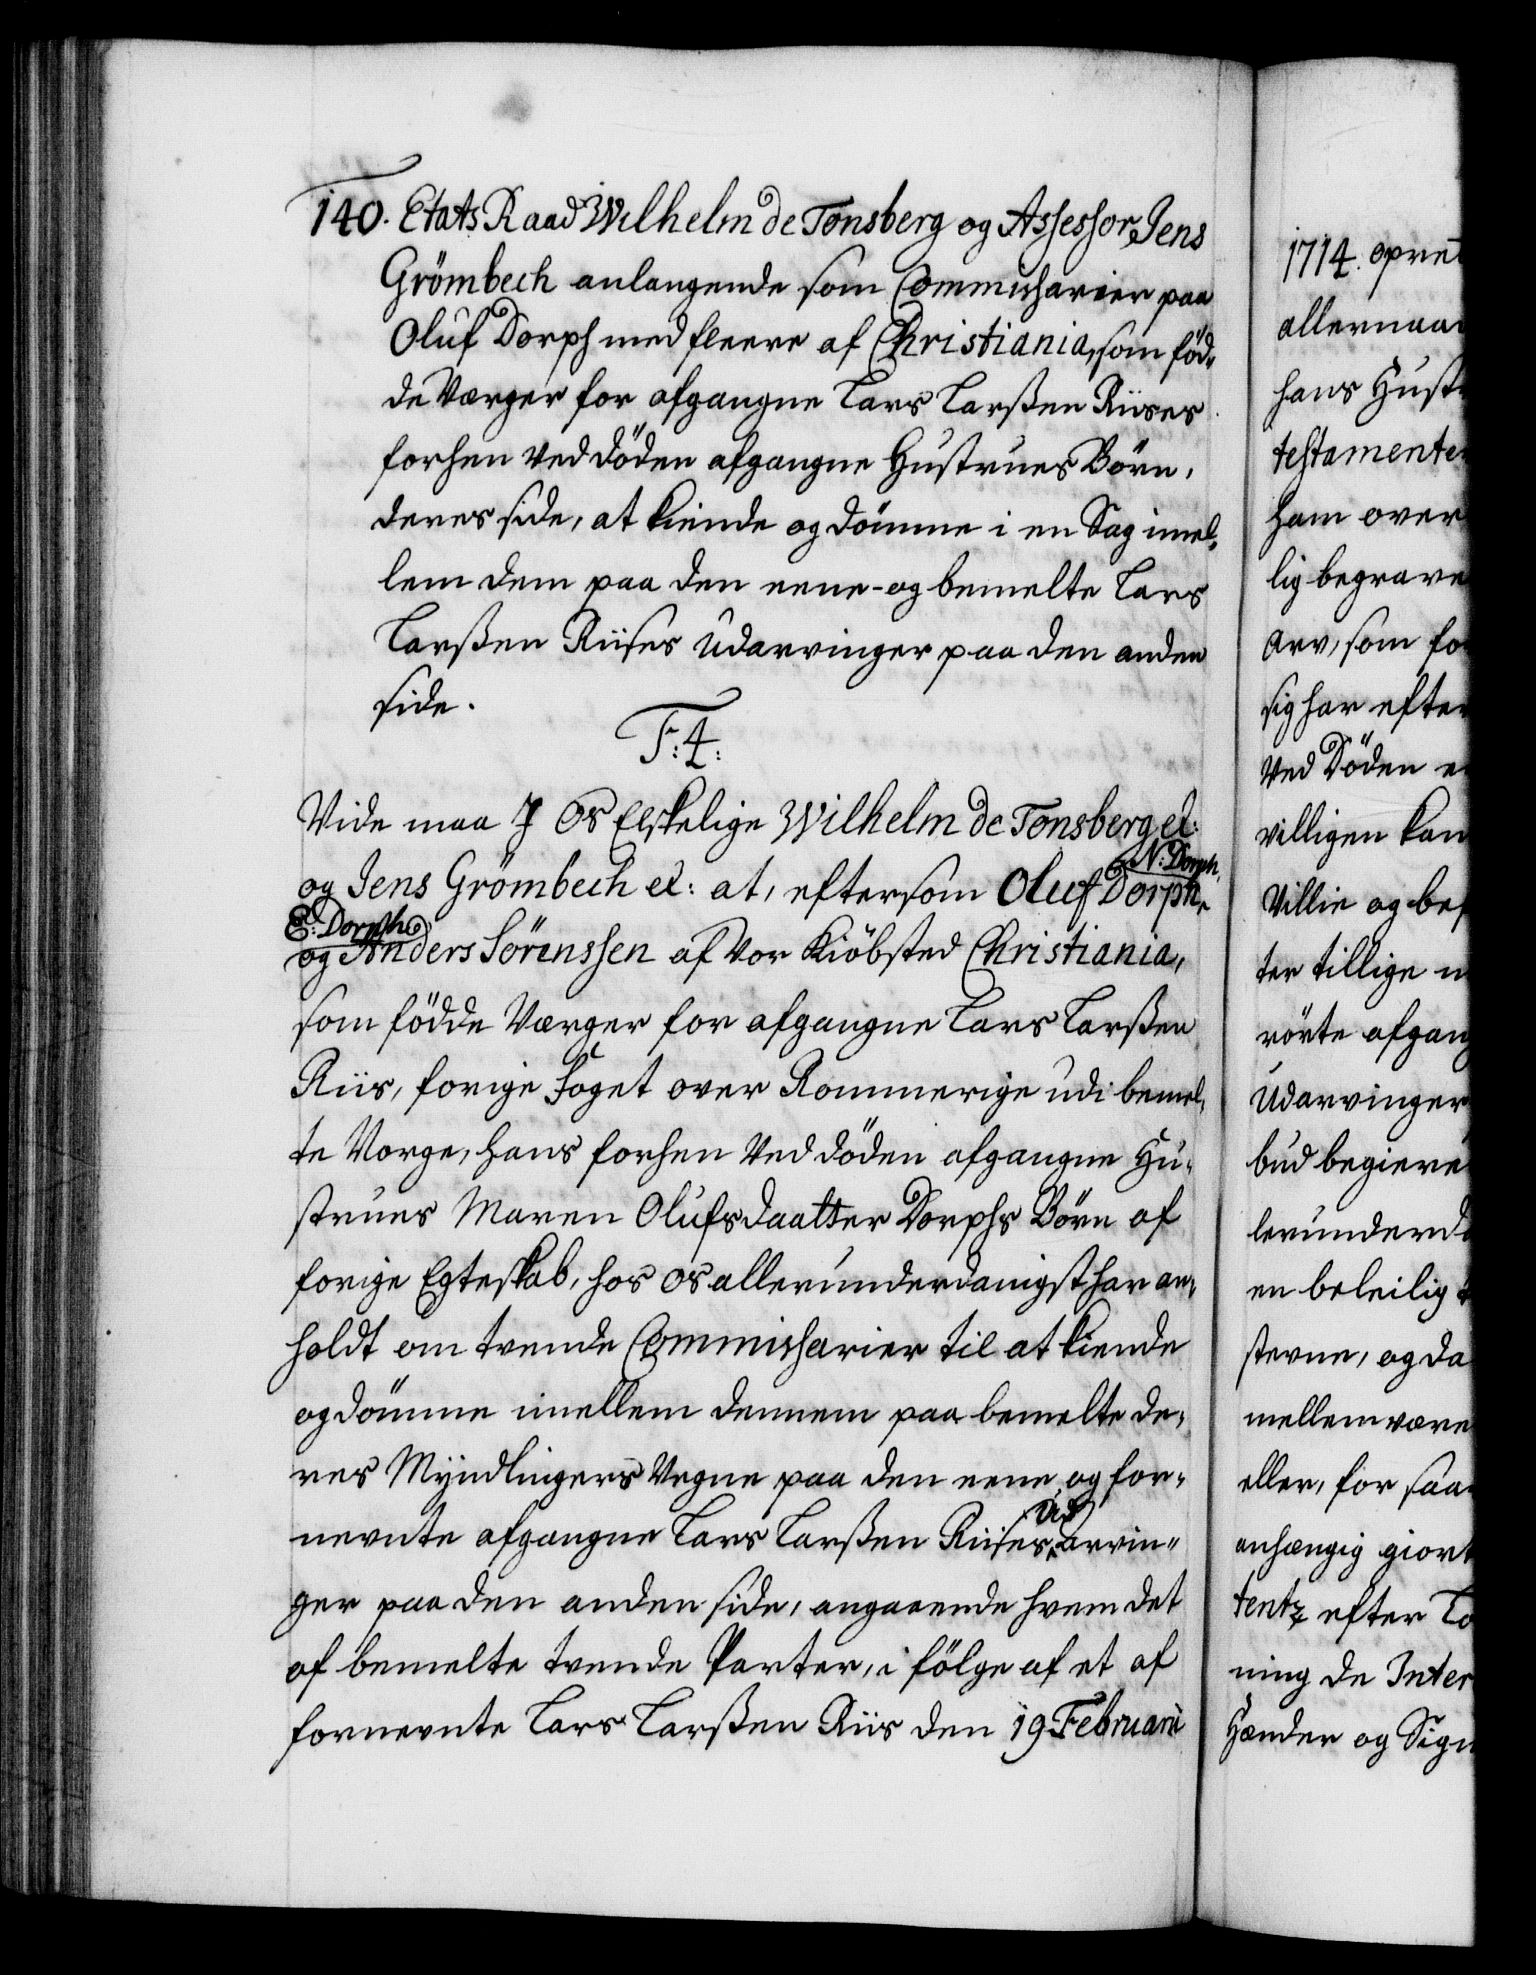 140. Etats Raad Wilhelm de Tonsberg og Assessor Jens
Grömbech anlangende som Commissarier paa
Oluf Dorph med fleere af Christiania, som fød-
de Værger for afgangne Lars Larßen Riises
forhen ved döden afgangne Hustrues Börn,
deres side, at kiende og dömme i en Sag imel-
lem dem paa den eene- og bemelte Lars
Larßen Riises Udarvinger paa den anden
side.
F: 4.
Vide maa I Os Elskelige Wilhelm de Tonsberg el:
og Jens Grömbech el: at, eftersom Oluf Dorph,
N: Dorph,
E: Dorph
og Anders Sörenssen af Vor Kiöbsted Christiania,
som födde Værger for afgangne Lars Larßen
Riis, forige Foget over Rommerige udi bemel-
te Norge, hans forhen Ved döden afgangne Hu-
strues Maren Olufsdaatter Dorphs Börn af
forige Egteskab, hos os allerunderdanigst har an-
holdt om tvende Commissarier til at kiende
og dömme imellem dennem paa bemelte de-
res Myndlingers Vegne paa den eene og for-
nevnte afgangne Lars Larßen Riises Ud arvin-
ger paa den anden side, angaaende hvem det
af bemelte tvende Parter, i fölge af et af
fornevnte Lars Larßen Riis den 19 Februarii
1714. opret
allernaa
hans Hust
testamente
ham over
lig begrave
Arv, som fo
sig har efter
Ved Döden e
villigen kan
Villie og be
ter tillige
rörte afgang
Udarvinger
bud begiere
lerunderd
en beleilig
sterne, og da
mellem være
eller, for saa
anhængig giort
tentz efter Lo
ning de Inter
Hænder og Sign